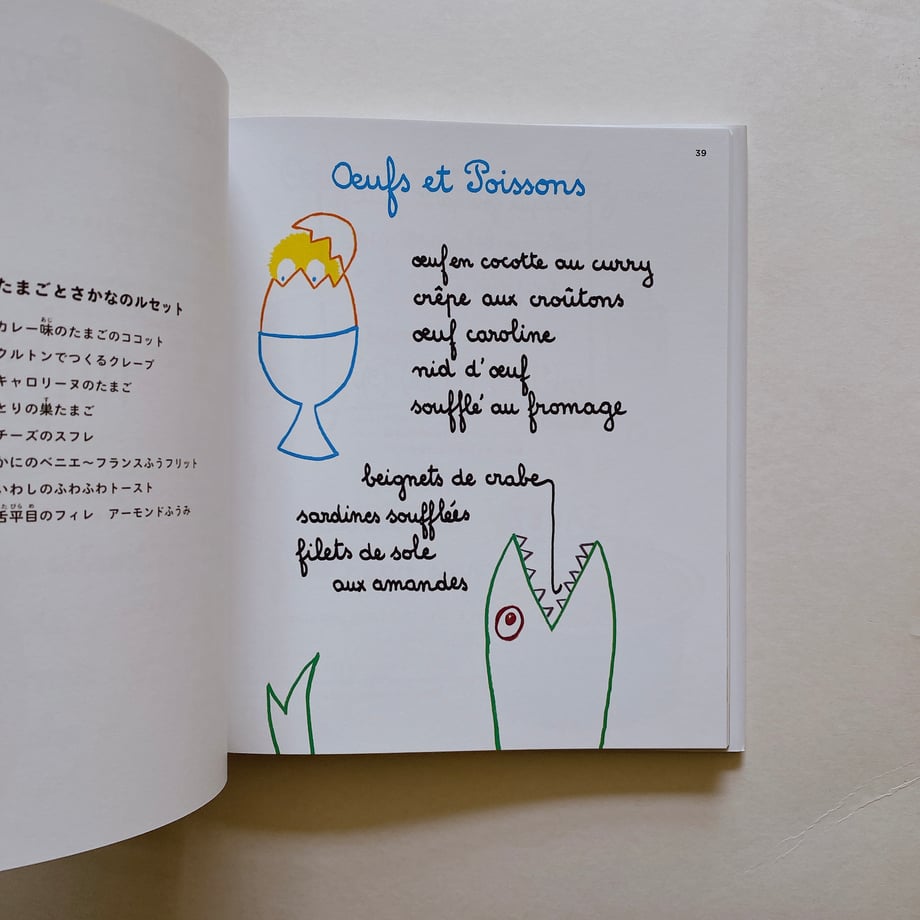 たまごとさかなのルセット
カレー味のたまごのココット
クルトンでつくるクレープ
キャロリーヌのたまご
とりの巣たまご
チーズのスフレ
かにのベニエ～フランスふうフリット
いわしのふわふわトースト
舌平目のフィレ アーモンドふうみ
39
Œufs et Poissons
œuf en cocotte au curry
crêpe aux croûtons
œuf caroline
nid d'œuf
soufflé au fromage
beignets de crabe
sardines soufflées
filets de sole
aux amandes